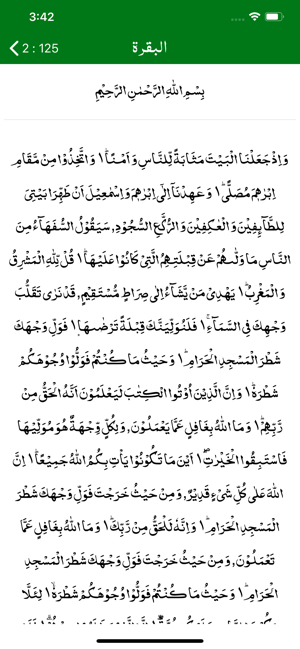 3:42
2 : 125
البقرة
بِسْمِ اللّٰهِ الرَّحْمٰنِ الرَّحِيْمِ
وَاِذْ جَعَلْنَا الْبَيْتَ مَثَابَةً لِّلنَّاسِ وَاَمْنًا ؕ ا وَاتَّخِذُوْا مِنْ مَّقَامِ
اِبْرٰهٖمَ مُصَلًّى ؕ ا وَعَهِدْنَاۤ اِلٰٓى اِبْرٰهٖمَ وَاِسْمٰعِيْلَ اَنْ طَهِّرَا بَيْتِىَ
لِلطَّآئِفِيْنَ وَالْعٰكِفِيْنَ وَالرُّكَّعِ السُّجُوْدِ, سَيَقُوْلُ السُّفَهَآءُ مِنَ
النَّاسِ مَا وَلّٰٮهُمْ عَنْ قِبْلَتِهِمُ الَّتِىْ كَانُوْا عَلَيْهَا ؕ ا قُلْ لِّلّٰهِ الْمَشْرِقُ
وَالْمَغْرِبُ ؕ ا يَهْدِىْ مَنْ يَّشَآءُ اِلٰى صِرَاطٍ مُّسْتَقِيْمٍ, قَدْ نَرٰى تَقَلُّبَ
وَجْهِكَ فِى السَّمَآءِ ۚ ا فَلَـنُوَلِّيَنَّكَ قِبْلَةً تَرْضٰٮهَا ا فَوَلِّ وَجْهَكَ
شَطْرَ الْمَسْجِدِ الْحَـرَامِ ؕ ا وَحَيْثُ مَا كُنْتُمْ فَوَلُّوْا وُجُوْهَكُمْ
شَطْرَهٗ ؕ ا وَاِنَّ الَّذِيْنَ اُوْتُوا الْكِتٰبَ لَيَـعْلَمُوْنَ اَنَّهُ الْحَـقُّ مِنْ
رَّبِّهِمْ ؕ ا وَمَا اللّٰهُ بِغَافِلٍ عَمَّا يَعْمَلُوْنَ, وَلِكُلٍّ وِّجْهَةٌ هُوَ مُوَلِّيْهَا
فَاسْتَبِقُوا الْخَيْرٰتِ ؕ ا اَيْنَ مَا تَكُوْنُوْا يَاْتِ بِكُمُ اللّٰهُ جَمِيْعًا ؕ ا اِنَّ
اللّٰهَ عَلٰى كُلِّ شَىْءٍ قَدِيْرٌ, وَمِنْ حَيْثُ خَرَجْتَ فَوَلِّ وَجْهَكَ شَطْرَ
الْمَسْجِدِ الْحَـرَامِ ؕ ا وَاِنَّهٗ لَـلْحَقُّ مِنْ رَّبِّكَ ؕ ا وَمَا اللّٰهُ بِغَافِلٍ عَمَّا
تَعْمَلُوْنَ, وَمِنْ حَيْثُ خَرَجْتَ فَوَلِّ وَجْهَكَ شَطْرَ الْمَسْجِدِ
الْحَـرَامِ ؕ ا وَحَيْثُ مَا كُنْتُمْ فَوَلُّوْا وُجُوْهَكُمْ شَطْرَهٗ ۙ ا لِئَلَّا